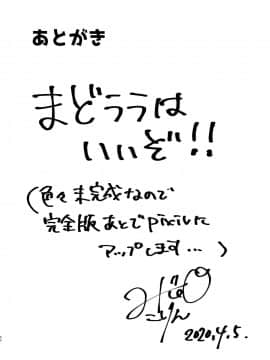 あとがき
まどううは
いいぞ!!
(色々未完成なので
完全版あとでpixivに
アップします…)
こりん
2020.4.5.